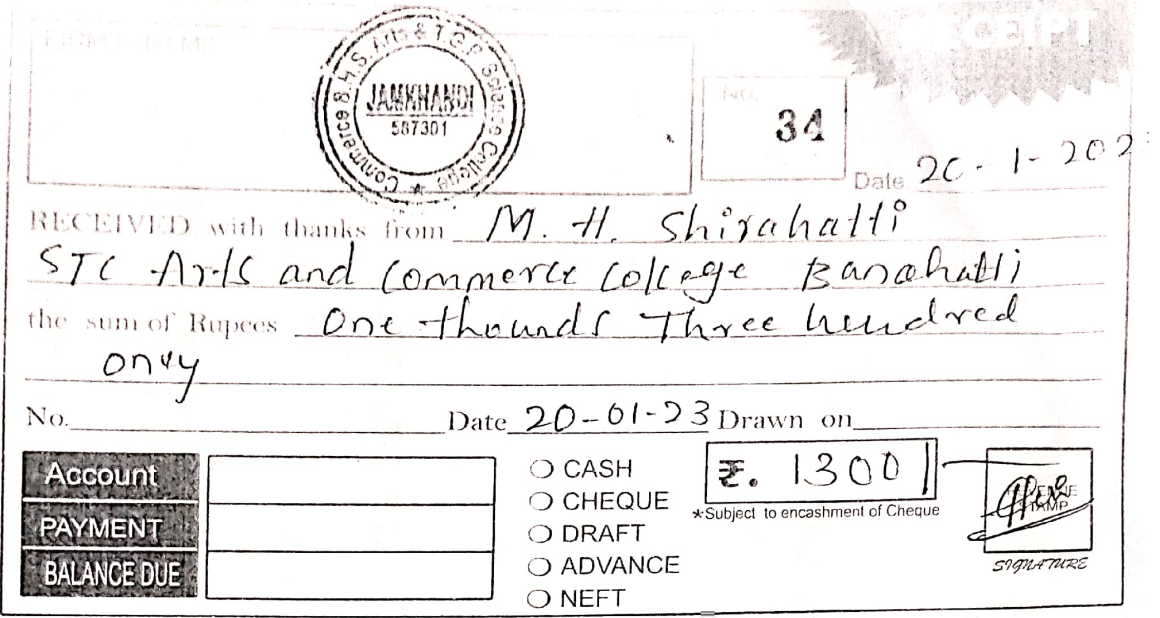 RECEIPT
Commerce B.H.S. Arts & T.G.P. Science College
JAMKHANDI
587301
No.
34
Date 20-1-202
RECEIVED with thanks from M. H. Shirahatti
STC Arts and Commerce College Banahatti
the sum of Rupees One thounds Three hundred
only
No. Date 20-01-23 Drawn on
Account
PAYMENT
BALANCE DUE
CASH
CHEQUE
DRAFT
ADVANCE
NEFT
₹. 1300/-
*Subject to encashment of Cheque
REVENUE
STAMP
SIGNATURE